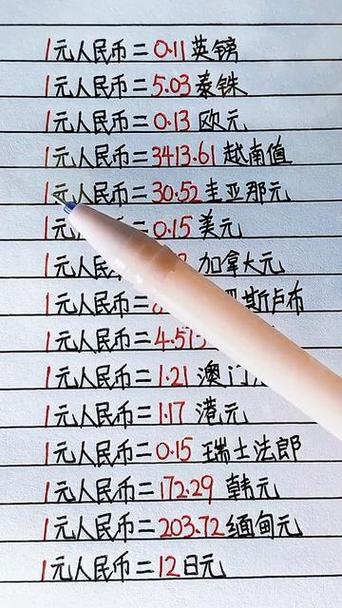 1元人民币=0.11英镑
1元人民币=5.03泰铢
1元人民币=0.13欧元
1元人民币=3413.61越南值
1元人民币=30.52圭亚那元
1元人民币=0.15美元
1元人民 加拿大元
1元人民币= 斯卢布
1元人民币=4.573
1元人民币=1.21澳门
1元人民币=1.17港元
1元人民币=0.15瑞士法郎
1元人民币=172.29韩元
1元人民币=203.72缅甸元
1元人民币=12日元